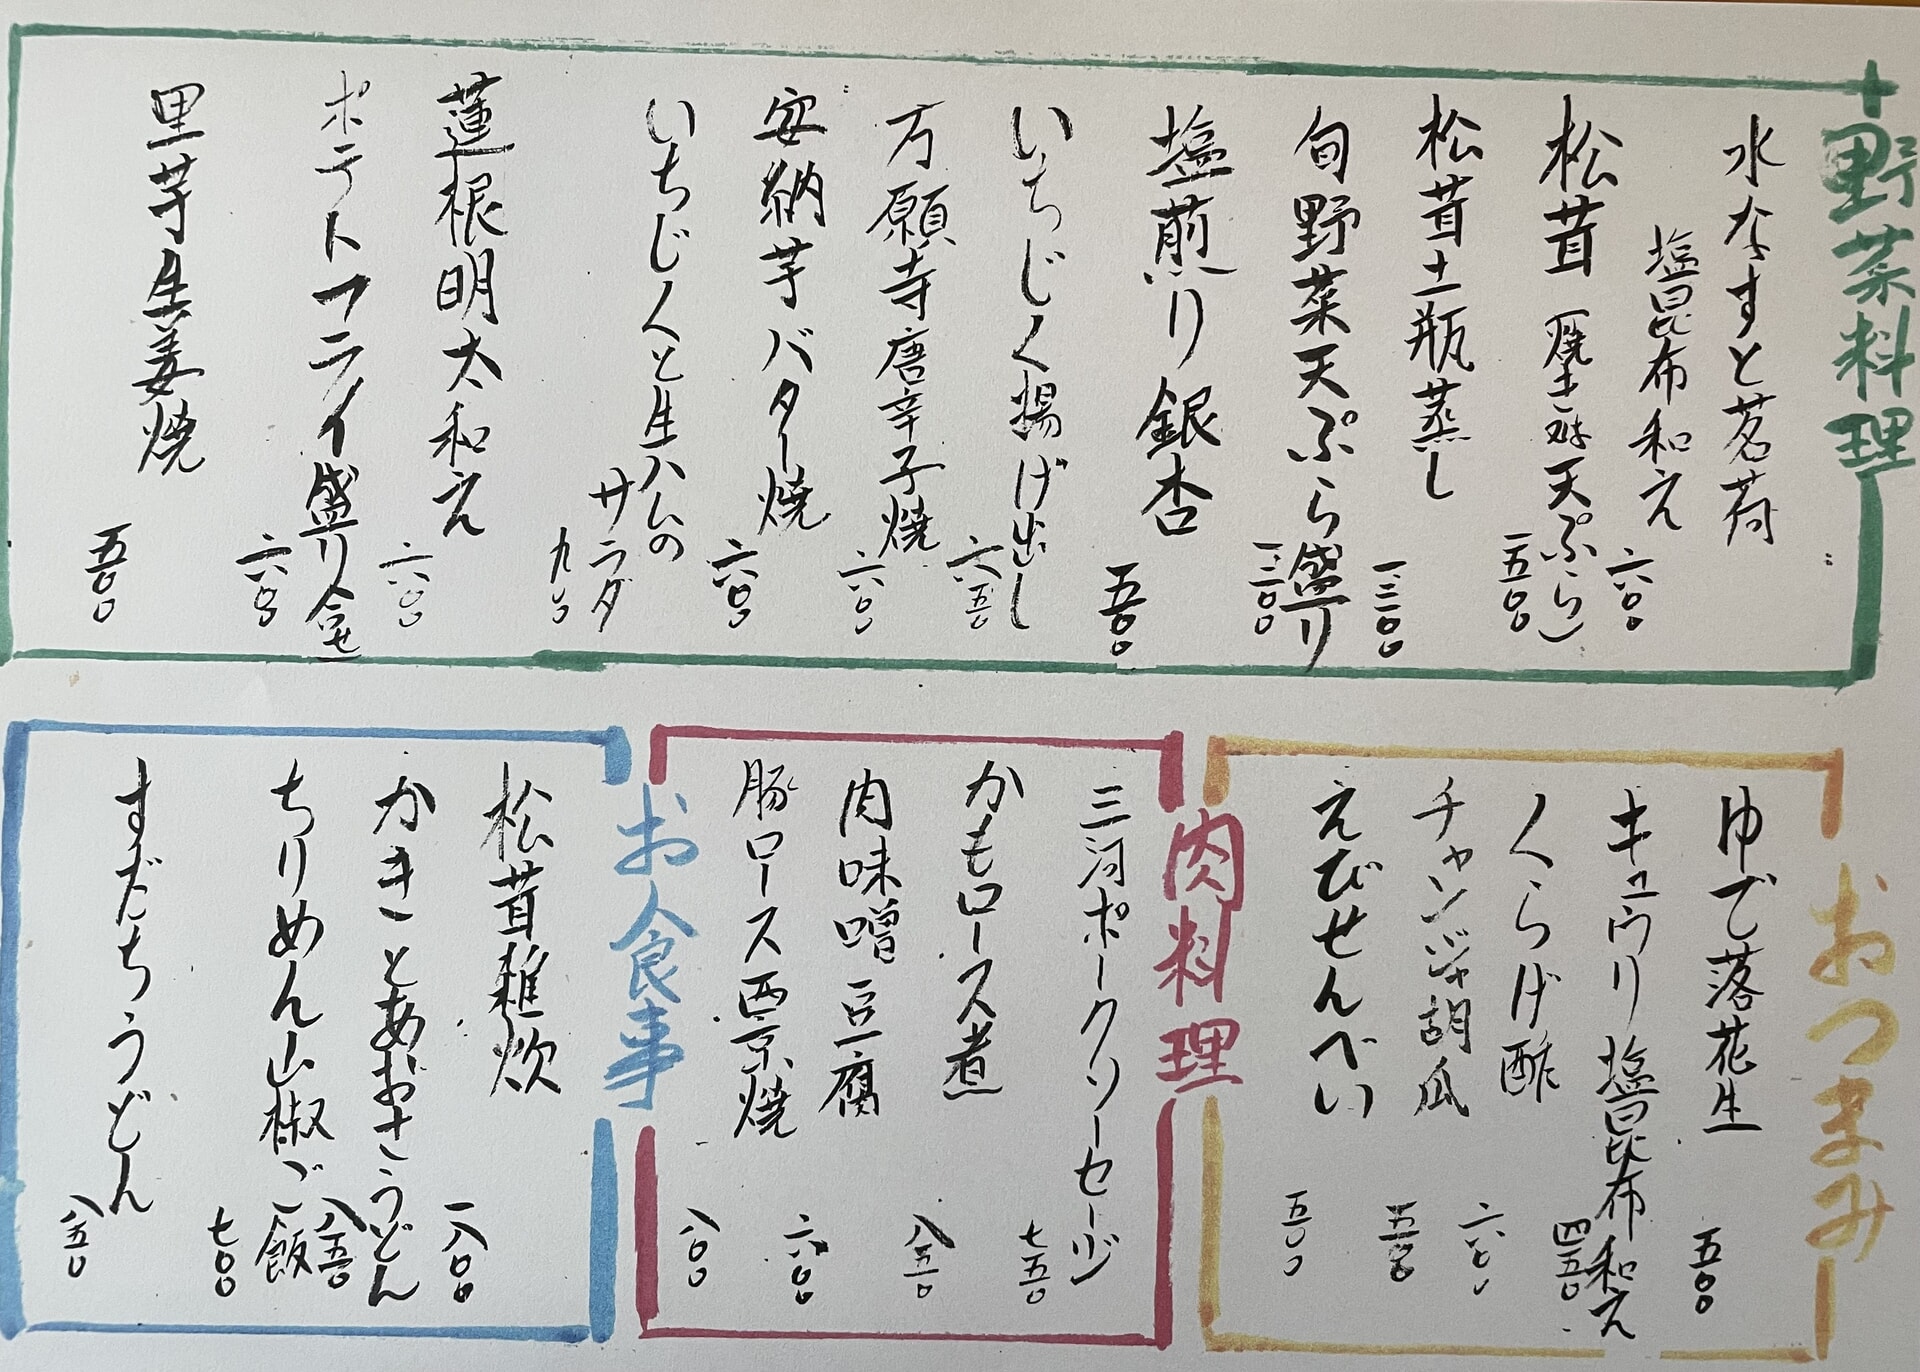 野菜料理
水なすと茗荷
塩昆布和え
六〇〇
松茸(焼き or 天ぷら)
一五〇〇
松茸土瓶蒸し
一三〇〇
旬野菜天ぷら盛り
一三〇〇
塩煎り銀杏
五〇〇
いちじく揚げ出し
六五〇
万願寺唐辛子焼
六〇〇
安納芋バター焼
六〇〇
いちじくと生ハムの
サラダ
九〇〇
蓮根明太和え
六〇〇
ポテトフライ盛り合せ
六〇〇
里芋生姜焼
五〇〇
おつまみ
ゆで落花生
五〇〇
キュウリ塩昆布和え
四五〇
くらげ酢
六〇〇
チャンジャ胡瓜
五〇〇
えびせんべい
五〇〇
肉料理
三河ポークソーセージ
七五〇
かもロース煮
八五〇
肉味噌豆腐
六〇〇
豚ロース西京焼
八〇〇
お食事
松茸雑炊
一八〇〇
かきとあおさうどん
八五〇
ちりめん山椒ご飯
七〇〇
すだちうどん
八五〇